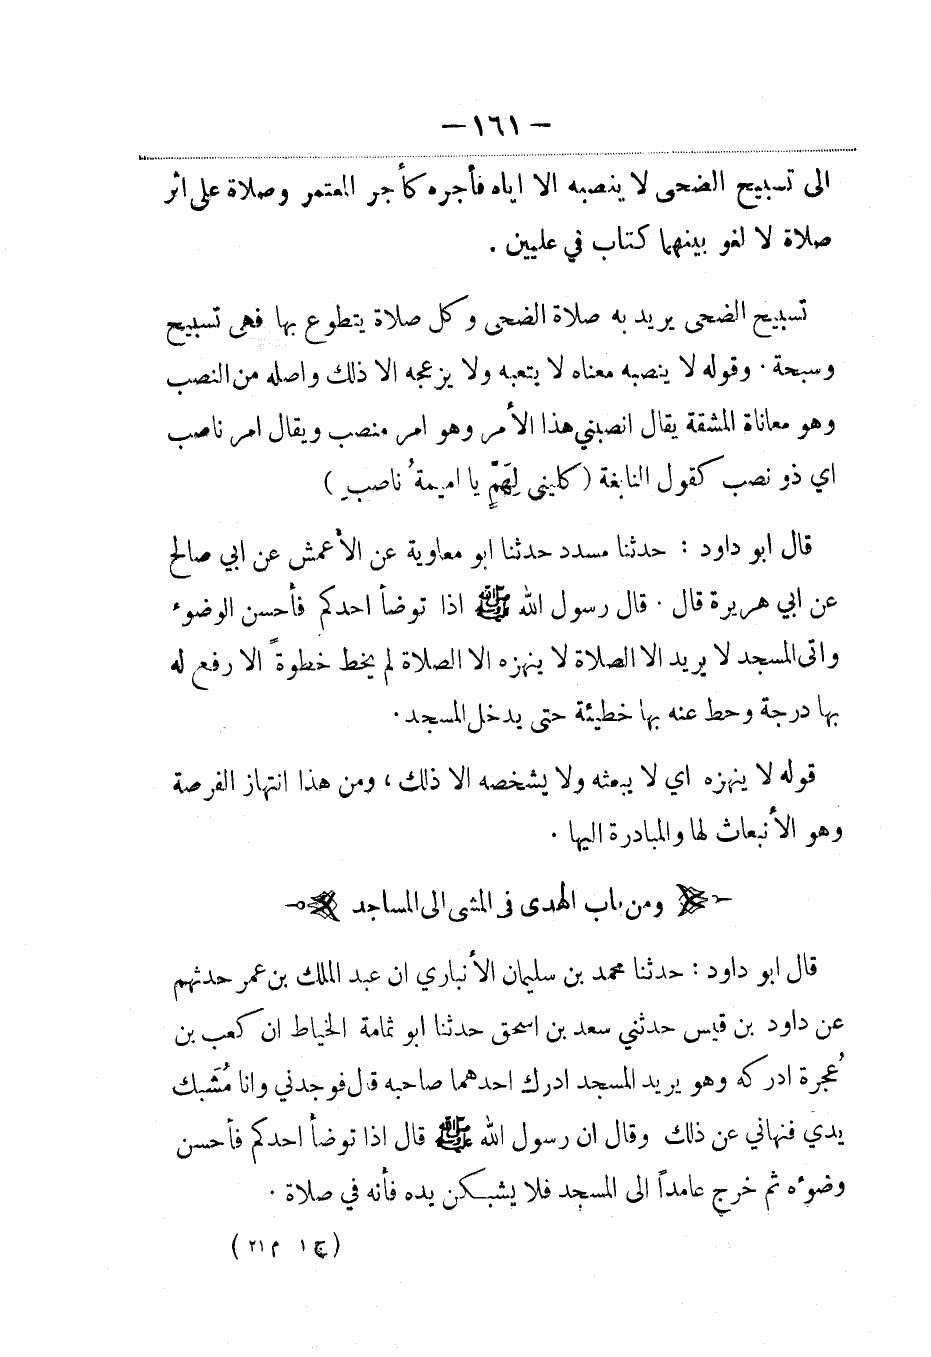 — ١٦١ —
الى تسبيح الضحى لا ينصبه الا اياه فأجره كأجر المعتمر وصلاة على اثر
صلاة لا لغو بينهما كتاب في عليين .
تسبيح الضحى يريد به صلاة الضحى وكل صلاة يتطوع بها فهى تسبيح
وسبحة . وقوله لا ينصبه معناه لا يتعبه ولا يزعجه الا ذلك واصله من النصب
وهو معاناة المشقة يقال انصبني هذا الأمر وهو امر منصب ويقال امر ناصب
اي ذو نصب كقول النابغة ( كليني لِهَمٍّ يا اميمةُ ناصبِ )
قال ابو داود : حدثنا مسدد حدثنا ابو معاوية عن الأعمش عن ابي صالح
عن ابي هريرة قال . قال رسول الله ﷺ اذا توضأ احدكم فأحسن الوضوء
واتى المسجد لا يريد الا الصلاة لا ينهزه الا الصلاة لم يخط خطوةً الا رفع له
بها درجة وحط عنه بها خطيئة حتى يدخل المسجد .
قوله لا ينهزه اي لا يبعثه ولا يشخصه الا ذلك ، ومن هذا انتهاز الفرصة
وهو الأنبعاث لها والمبادرة اليها .
ومن باب الهدى في المشى الى المساجد
قال ابو داود : حدثنا محمد بن سليمان الأنباري ان عبد الملك بن عمر حدثهم
عن داود بن قيس حدثني سعد بن اسحق حدثنا ابو ثمامة الخياط ان كعب بن
عُجرة ادركه وهو يريد المسجد ادرك احدهما صاحبه قال فوجدني وانا مُشَبك
يدي فنهاني عن ذلك وقال ان رسول الله ﷺ قال اذا توضأ احدكم فأحسن
وضوءه ثم خرج عامداً الى المسجد فلا يشبكن يده فأنه في صلاة .
( ج ١ م ٢١ )